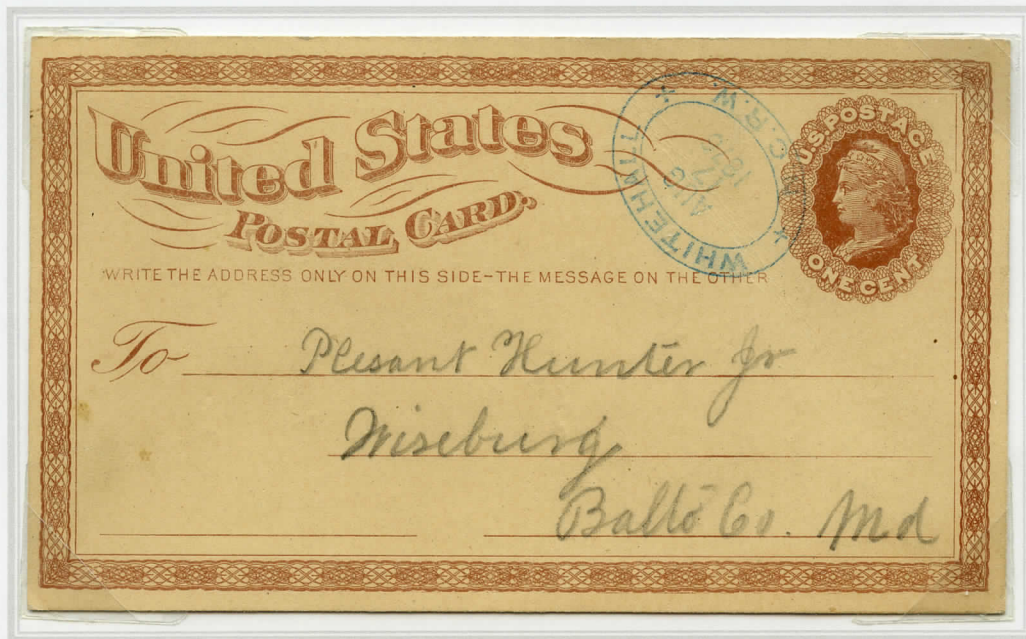 United States
POSTAL CARD.
WRITE THE ADDRESS ONLY ON THIS SIDE-THE MESSAGE ON THE OTHER
U.S. POSTAGE
ONE CENT
WHITEHALL
To Plesant Hunter Jr
Wiseburg
Balto Co. Md